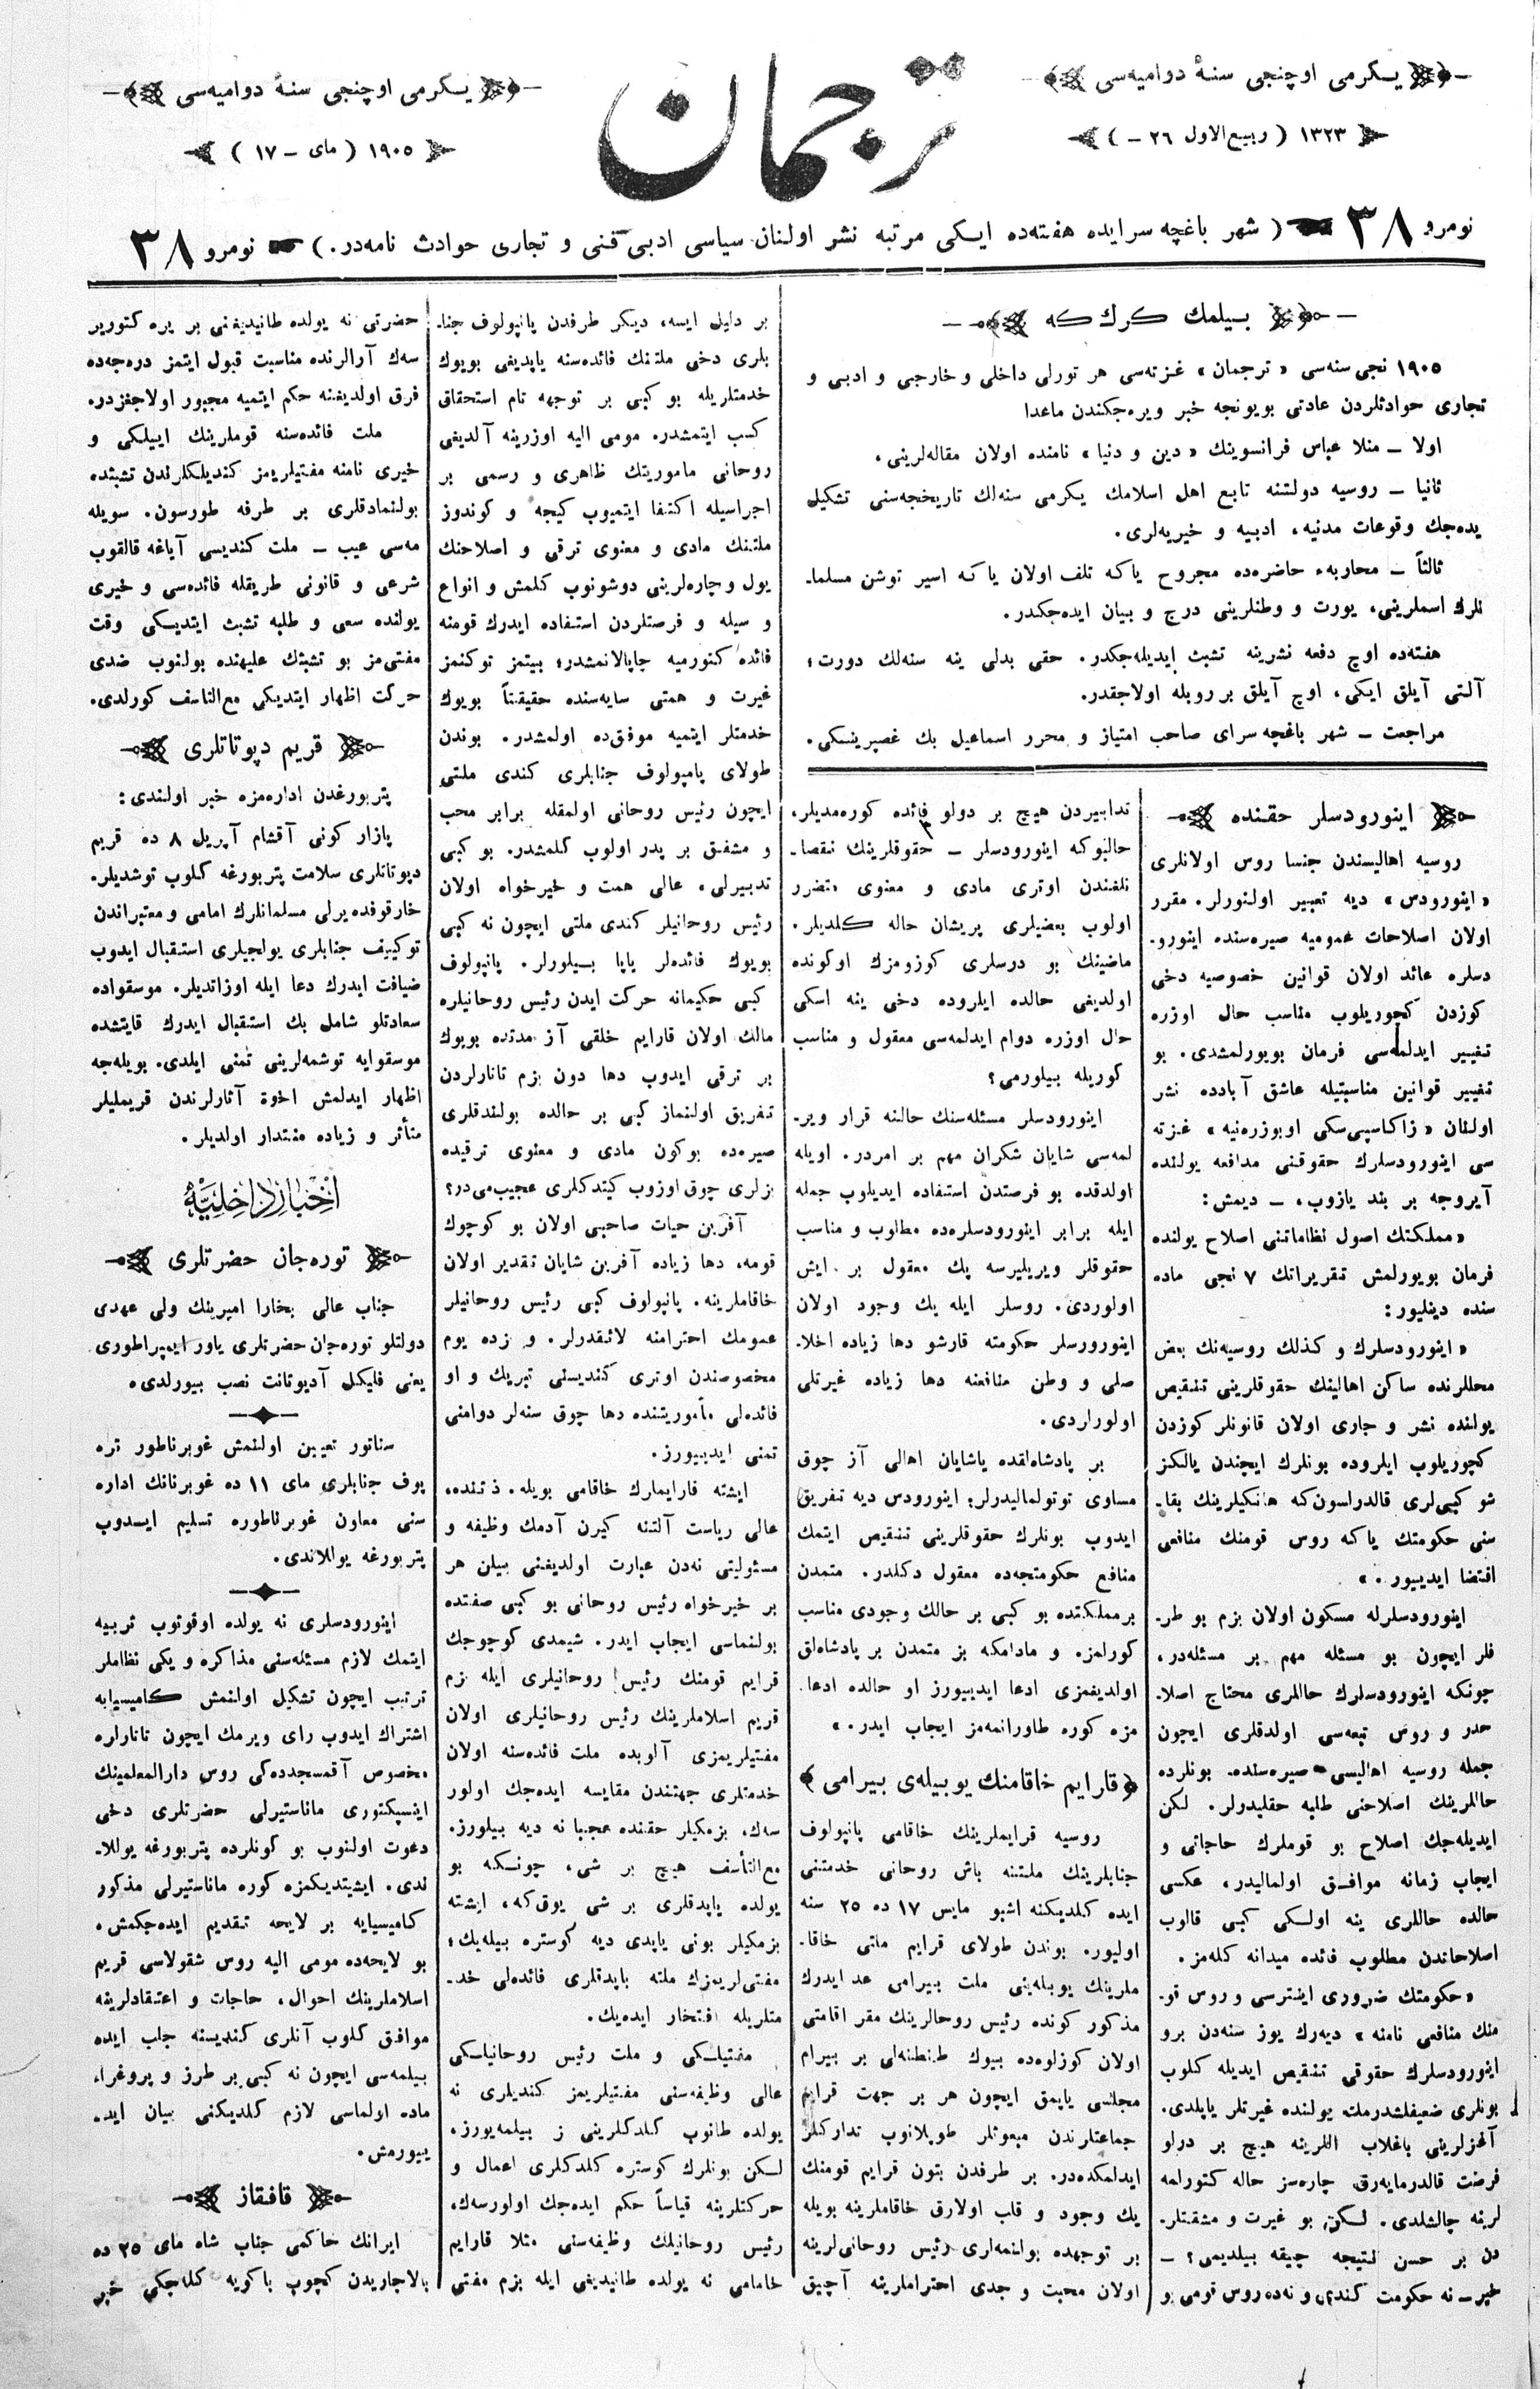 یكرمی اوچنجی سنۀ دوامیه‌سی
١٣٢٣ ( ربیع‌الاول ٢٦ – )
ترجمان
یكرمی اوچنجی سنۀ دوامیه‌سی
١٩٠٥ ( مای – ١٧ )
نومرو ٣٨ ( شهر باغچه سرایده هفته‌ده ایكی مرتبه نشر اولنان سیاسی ادبی فنی و تجاری حوادث نامه‌در. ) نومرو ٣٨
بیلمك كرك كه
١٩٠٥ نجی سنه‌سی « ترجمان » غزته‌سی هر تورلی داخلی و خارجی و ادبی و
تجاری حوادثلردن عادتی بویونجه خبر ویره‌جكندن ماعدا
اولا – منلا عباس فرانسوینك « دین و دنیا » نامنده اولان مقاله‌لرینی،
ثانیا – روسیه دولتنه تابع اهل اسلامك یكرمی سنه‌لك تاریخجه‌سنی تشكیل
یده‌جك وقوعات مدنیه، ادبیه و خیریه‌لری.
ثالثاً – محاربهء حاضره‌ده مجروح یاكه تلف اولان یاكه اسیر توشن مسلما-
نلرك اسملرینی، یورت و وطنلرینی درج و بیان ایده‌جكدر.
هفته‌ده اوچ دفعه نشرینه تشبث ایدیله‌جكدر. حقی بدلی ینه سنه‌لك دورت؛
آلتی آیلق ایكی، اوچ آیلق بر روبله اولاجقدر.
مراجعت – شهر باغچه سرای صاحب امتیاز و محرر اسماعیل بك غصپرینسكی.
اینورودسلر حقنده
روسیه اهالیسندن جنسا روس اولانلری
« اینورودس » دیه تعبیر اولنورلر. مقرر
اولان اصلاحات عمومیه صیره‌سنده اینورو-
دسلره عائد اولان قوانین خصوصیه دخی
كوزدن كچوریلوب مناسب حال اوزره
تغییر ایدلمه‌سی فرمان بویورلمشدی. بو
تغییر قوانین مناسبتیله عاشق آبادده نشر
اولنان « زاكاسپی‌سكی اوبوزره‌نیه » غزته
سی اینورودسلرك حقوقنی مدافعه یولنده
آیروجه بر بند یازوب، – دیمش:
« مملكتك اصول نظاماتنی اصلاح یولنده
فرمان بویورلمش تقریراتك ٧ نجی ماده
سنده دینلیور:
« اینورودسلرك و كذلك روسیه‌نك بعض
محللرنده ساكن اهالینك حقوقلرینی تنقیص
یولنده نشر و جاری اولان قانونلر كوزدن
كچوریلوب ایلروده بونلرك ایچندن یالكز
شو كبی‌لری قالدراسون‌كه هانكیلرینك بقا-
سنی حكومتك یاكه روس قومنك منافعی
اقتضا ایدییور. »
اینورودسلرله مسكون اولان بزم بو طر-
فلر ایچون بو مسئله مهم بر مسئله‌در،
چونكه اینورودسلرك حاللری محتاج اصلا-
حدر و روس تبعه‌سی اولدقلری ایچون
جمله روسیه اهالیسی صیره‌سنده. بونلرده
حاللرینك اصلاحنی طلبه حقلیدولر. لكن
ایدیله‌جك اصلاح بو قوملرك حاجاتی و
ایجاب زمانه موافق اولمالیدر، عكسی
حالده حاللری ینه اولكی كبی قالوب
اصلاحاتدن مطلوب فائده میدانه كله‌مز.
« حكومتك ضروری اینترسی و روس قو-
منك منافعی نامنه » دیه‌رك یوز سنه‌دن برو
اینورودسلرك حقوقی تنقیص ایدیله كلوب
بونلری ضعیفلشدرمك یولنده غیرتلر یاپلدی.
آغزلرینی باغلاب اللرینه هیچ بر درلو
فرصت قالدرمایه‌رق چاره‌سز حاله كتورلمه
لرینه چالشلدی. لكن بو غیرت و مشقتلر-
دن بر حسن نتیجه چیقه بیلدیمی؟ –
خیر – نه حكومت كندی و نه‌ده روس قومی بو
تدابیردن هیچ بر دولو فائده كوره‌مدیلر،
حالبوكه اینورودسلر – حقوقلرینك نقصا-
نلغندن اوتری مادی و معنوی متضرر
اولوب بعضیلری پریشان حاله كلدیلر.
ماضینك بو درسلری كوزومزك اوكونده
اولدیغی حالده ایلروده دخی ینه اسكی
حال اوزره دوام ایدلمه‌سی معقول و مناسب
كوریله بیلورمی؟
اینورودسلر مسئله‌سنك حالنه قرار ویر-
لمه‌سی شایان شكران مهم بر امردر. اویله
اولدقده بو فرصتدن استفاده ایدیلوب جمله
ایله برابر اینورودسلره‌ده مطلوب و مناسب
حقوقلر ویریلیرسه پك معقول بر ایش
اولوردی. روسلر ایله یك وجود اولان
اینورورسلر حكومته قارشو دها زیاده اخلا-
صلی و وطن منافعنه دها زیاده غیرتلی
اولوراردی.
بر پادشاه‌لقده یاشایان اهالی آز چوق
مساوی توتولمالیدرلر؛ اینورودس دیه تفریق
ایدوب بونلرك حقوقلرینی تنقیص ایتمك
منافع حكومتجه‌ده معقول دكلدر. متمدن
بر مملكتده بو كبی بر حالك وجودی مناسب
كورلمز. و مادامكه بز متمدن بر پادشاه‌لق
اولدیغمزی ادعا ایدییورز او حالده ادعا
مزه كوره طاورانمه‌مز ایجاب ایدر. »
﴿ قارایم خاقامنك یوبیله‌ی بیرامی ﴾
روسیه قرایملرینك خاقامی پانپولوف
جنابلرینك ملتنه باش روحانی خدمتنی
ایده كلدیكنه اشبو مایس ١٧ ده ٢٥ سنه
اولیور. بوندن طولای قرایم ملتی خاقا-
ملرینك یوبیله‌ینی ملت بیرامی عد ایدرك
مذكور كونده رئیس روحالرینك مقر اقامتی
اولان كوزلوه‌ده بیوك طنطنه‌لی بر بیرام
مجلسی یاپمق ایچون هر بر جهت قرایم
جماعتلرندن مبعوثلر طوپلانوب تداركلر
ایدلمكده‌در. بر طرفدن بتون قرایم قومنك
یك وجود و قلب اولارق خاقاملرینه بویله
بر توجهده بولنمه‌لری رئیس روحانی‌لرینه
اولان محبت و جدی احتراملرینه آچیق
بر دلیل ایسه، دیكر طرفدن پانپولوف جنا-
بلری دخی ملتنك فائده‌سنه یاپدیغی بویوك
خدمتلریله بو كبی بر توجهه تام استحقاق
كسب ایتمشدر. مومی الیه اوزرینه آلدیغی
روحانی ماموریتك ظاهری و رسمی بر
اجراسیله اكتفا ایتمیوب كیجه و كوندوز
ملتنك مادی و معنوی ترقی و اصلاحنك
یول و چاره‌لرینی دوشونوب كلمش و انواع
و سیله و فرصتلردن استفاده ایدرك قومنه
فائده كتورمیه چاپالانمشدر؛ بیتمز توكنمز
غیرت و همتی سایه‌سنده حقیقتاً بویوك
خدمتلر ایتمیه موفق‌ده اولمشدر. بوندن
طولای پامپولوف جنابلری كندی ملتی
ایچون رئیس روحانی اولمقله برابر محب
و مشفق بر پدر اولوب كلمشدر. بو كبی
تدبیرلی، عالی همت و خیرخواه اولان
رئیس روحانیلر كندی ملتی ایچون نه كبی
بویوك فائده‌لر یاپا بیلورلر. پانپولوف
كبی حكیمانه حركت ایدن رئیس روحانیلره
مالك اولان قارایم خلقی آز مدتده بویوك
بر ترقی ایدوب دها دون بزم تاتارلردن
تفریق اولنماز كبی بر حالده بولندقلری
صیره‌ده بوكون مادی و معنوی ترقیده
بزلری چوق اوزوب كیتدكلری عجیب‌می‌در؟
آفرین حیات صاحبی اولان بو كوچوك
قومه، دها زیاده آفرین شایان تقدیر اولان
خاقاملرینه. پانپولوف كبی رئیس روحانیلر
عمومك احترامنه لائقدرلر. و بزده یوم
مخصوصندن اوتری كندیسنی تبریك و او
فائده‌لی مأموریتنده دها چوق سنه‌لر دوامنی
تمنی ایدییورز.
ایشته قارایمارك خاقامی بویله. ذتنده،
عالی ریاست آلتنه كیرن آدمك وظیفه و
مسئولیتی نه‌دن عبارت اولدیغنی بیلن هر
بر خیرخواه رئیس روحانی بو كبی صفتده
بولنماسی ایجاب ایدر. شیمدی كوچوجك
قرایم قومنك رئیس روحانیلری ایله بزم
قریم اسلاملرینك رئیس روحانیلری اولان
مفتیلریمزی آلوبده ملت فائده‌سنه اولان
خدمتلری جهتندن مقایسه ایده‌جك اولور
سه‌ك، بزمكیلر حقنده عجبا نه دیه بیلورز.
مع‌التأسف هیچ بر شی، چونكه بو
یولده یاپدقلری بر شی یوق‌كه، ایشته
بزمكیلر بونی یاپدی دیه كوستره بیله‌یك؛
مفتی‌لریمزك ملته یاپدقلری فائده‌لی خد-
متلریله افتخار ایده‌یك.
مفتیلكی و ملت رئیس روحانیلكی
عالی وظیفه‌سنی مفتیلریمز كندیلری نه
یولده طانوب كلدكلرینی ز بیلمه‌یورز،
لكن بونلرك كوستره كلدكلری اعمال و
حركتلرینه قیاساً حكم ایده‌جك اولورسه‌ك،
رئیس روحانیلك وظیفه‌سنی مثلا قارایم
خامامی نه یولده طانیدیغی ایله بزم مفتی
حضرتی نه یولده طانیدیغنی بر یره كتوریر
سه‌ك آرالرنده مناسبت قبول ایتمز دره‌جه‌ده
فرق اولدیغنه حكم ایتمیه مجبور اولاجغزدر.
ملت فائده‌سنه قوملرینك اییلكی و
خیری نامنه مفتیلریمز كندیلكلرندن تشبثده
بولنمادقلری بر طرفه طورسون. سویله
مه‌سی عیب – ملت كندیسی آیاغه قالقوب
شرعی و قانونی طریقله فائده‌سی و خیری
یولنده سعی و طلبه تشبث ایتدیكی وقت
مفتی‌مز بو تشبثك علیهنده بولنوب ضدی
حركت اظهار ایتدیكی مع‌التاسف كورلدی.
قریم دپوتاتلری
پتربورغدن اداره‌مزه خبر اولندی:
پازار كونی آقشام آپریل ٨ ده قریم
دپوتاتلری سلامت پتربورغه كلوب توشدیلر.
خارقوفده یرلی مسلمانلرك امامی و معتبراندن
توكییف جنابلری یولجیلری استقبال ایدوب
ضیافت ایدرك دعا ایله اوزاتدیلر. موسقواده
سعادتلو شامل بك استقبال ایدرك قایتشده
موسقوایه توشمه‌لرینی تمنی ایلدی. بویله‌جه
اظهار ایدلمش اخوة آثارلرندن قریملیلر
متأثر و زیاده منتدار اولدیلر.
اخبار داخلیه
توره‌جان حضرتلری
جناب عالی بخارا امیرینك ولی عهدی
دولتلو توره‌جان حضرتلری یاور ایمپراطوری
یعنی فلیكل آدیوتانت نصب بیورلدی.
سناتور تعیین اولنمش غوبرناطور تره
پوف جنابلری مای ١١ ده غوبرنانك اداره
سنی معاون غوبرناطوره تسلیم ایدوب
پتربورغه یوللاندی.
اینورودسلری نه یولده اوقوتوب تربیه
ایتمك لازم مسئله‌سنی مذاكره و یكی نظاملر
ترتیب ایچون تشكیل اولنمش كامیسیایه
اشتراك ایدوب رای ویرمك ایچون تاتارلره
مخصوص آقمسجدده‌كی روس دارالمعلمینك
اینسپكتوری ماناستیرلی حضرتلری دخی
دعوت اولنوب بو كونلرده پتربورغه یوللا-
ندی. ایشیتدیكمزه كوره ماناستیرلی مذكور
كامیسیایه بر لایحه تقدیم ایده‌جكمش.
بو لایحه‌ده مومی الیه روس شقولاسی قریم
اسلاملرینك احوال، حاجات و اعتقادلرینه
موافق كلوب آنلری كندیسنه جلب ایده
بیلمه‌سی ایچون نه كبی بر طرز و پروغرا-
ماده اولماسی لازم كلدیكنی بیان اید-
ییورمش.
قافقاز
ایرانك حاكمی جناب شاه مای ٢٥ ده
بالاجاریدن كچوب باكویه كله‌جكی خبر